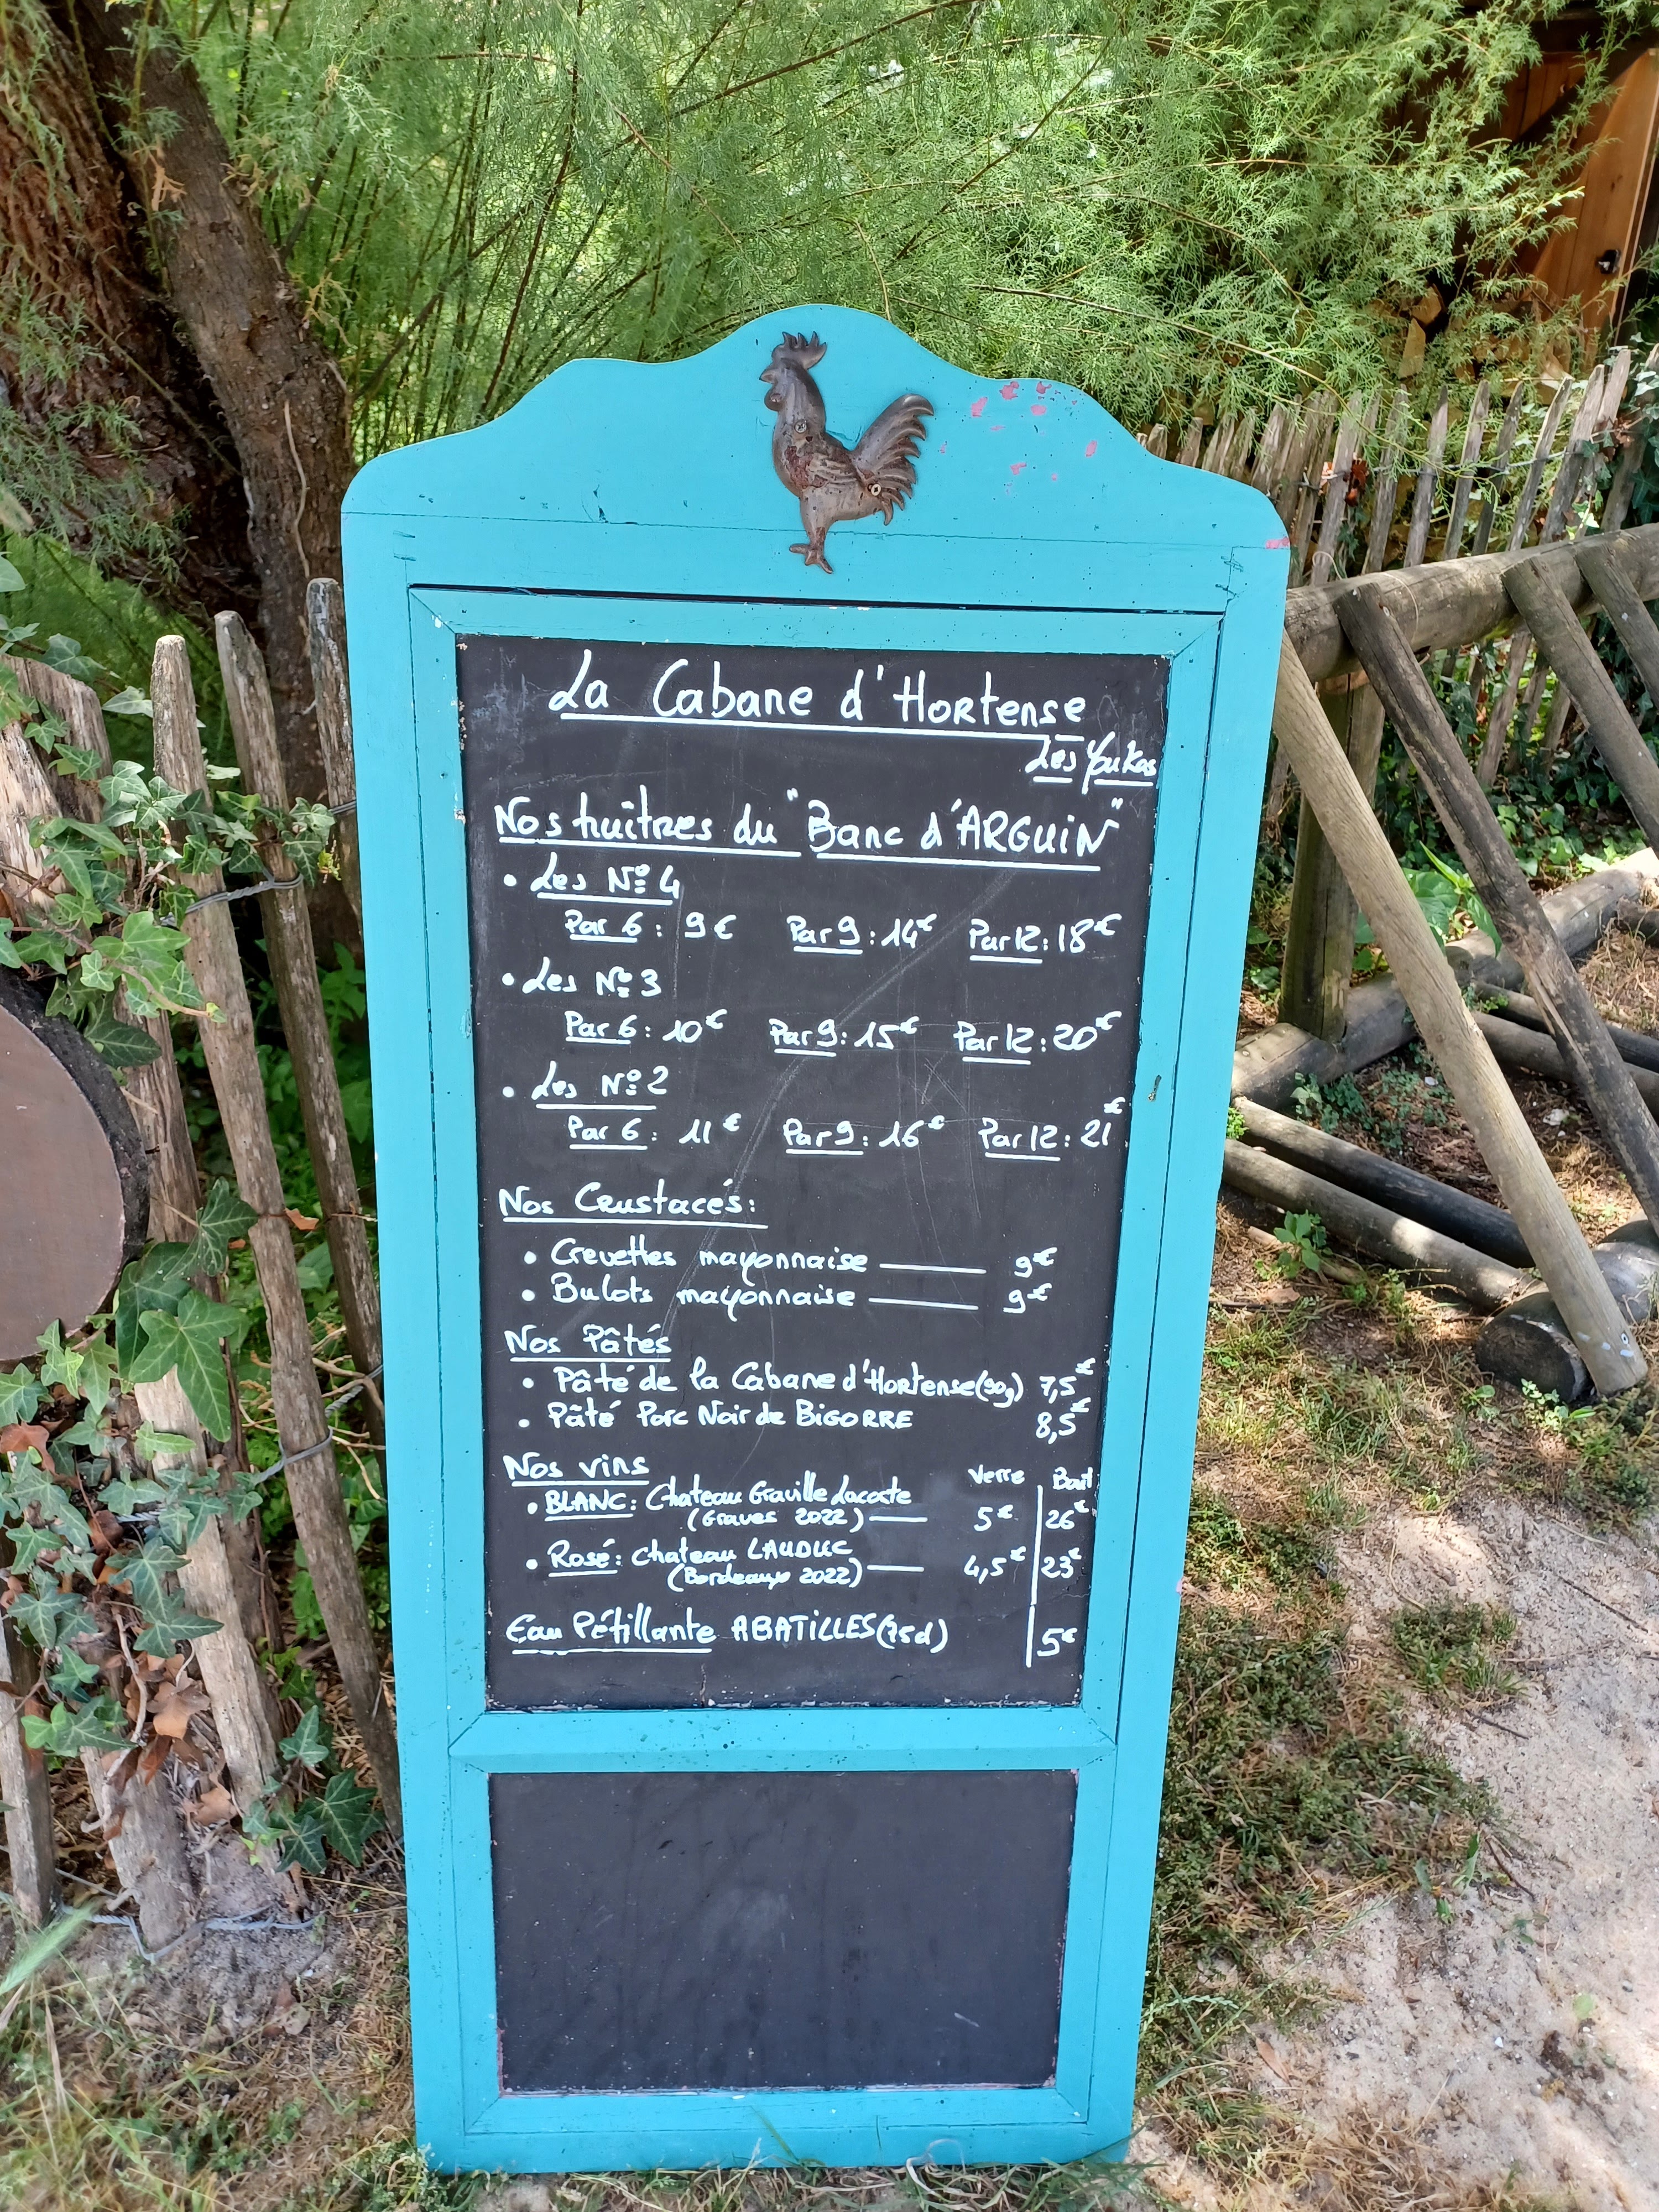 La Cabane d'Hortense
Les Youkas
Nos huîtres du "Banc d'ARGUIN"
• Les N° 4
Par 6 : 9€ Par 9 : 14€ Par 12 : 18€
• Les N° 3
Par 6 : 10€ Par 9 : 15€ Par 12 : 20€
• Les N° 2
Par 6 : 11€ Par 9 : 16€ Par 12 : 21€
Nos Crustacés :
• Crevettes mayonnaise 9€
• Bulots mayonnaise 9€
Nos Pâtés
• Pâté de la Cabane d'Hortense (90g) 7,5€
• Pâté Porc Noir de BIGORRE 8,5€
Nos vins Verre Bout
• BLANC : Chateau Graville Lacoste
(Graves 2022) 5€ 26€
• Rosé : Chateau LAUDUC
(Bordeaux 2022) 4,5€ 23€
Eau Pétillante ABATILLES (75cl) 5€